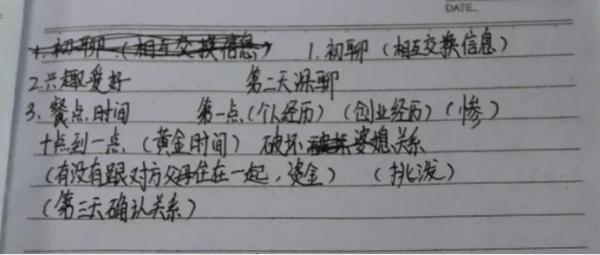 DATE.
1. 初聊 (相互交换信息) 1. 初聊 (相互交换信息)
2. 兴趣爱好 第二天深聊
3. 餐点. 时间 第一点. (个人经历) (创业经历) (惨)
十点到一点. (黄金时间) 破坏 破坏 婆媳关系
(有没有跟对方父母住在一起, 资金) (挑泼)
(第三天确认关系)